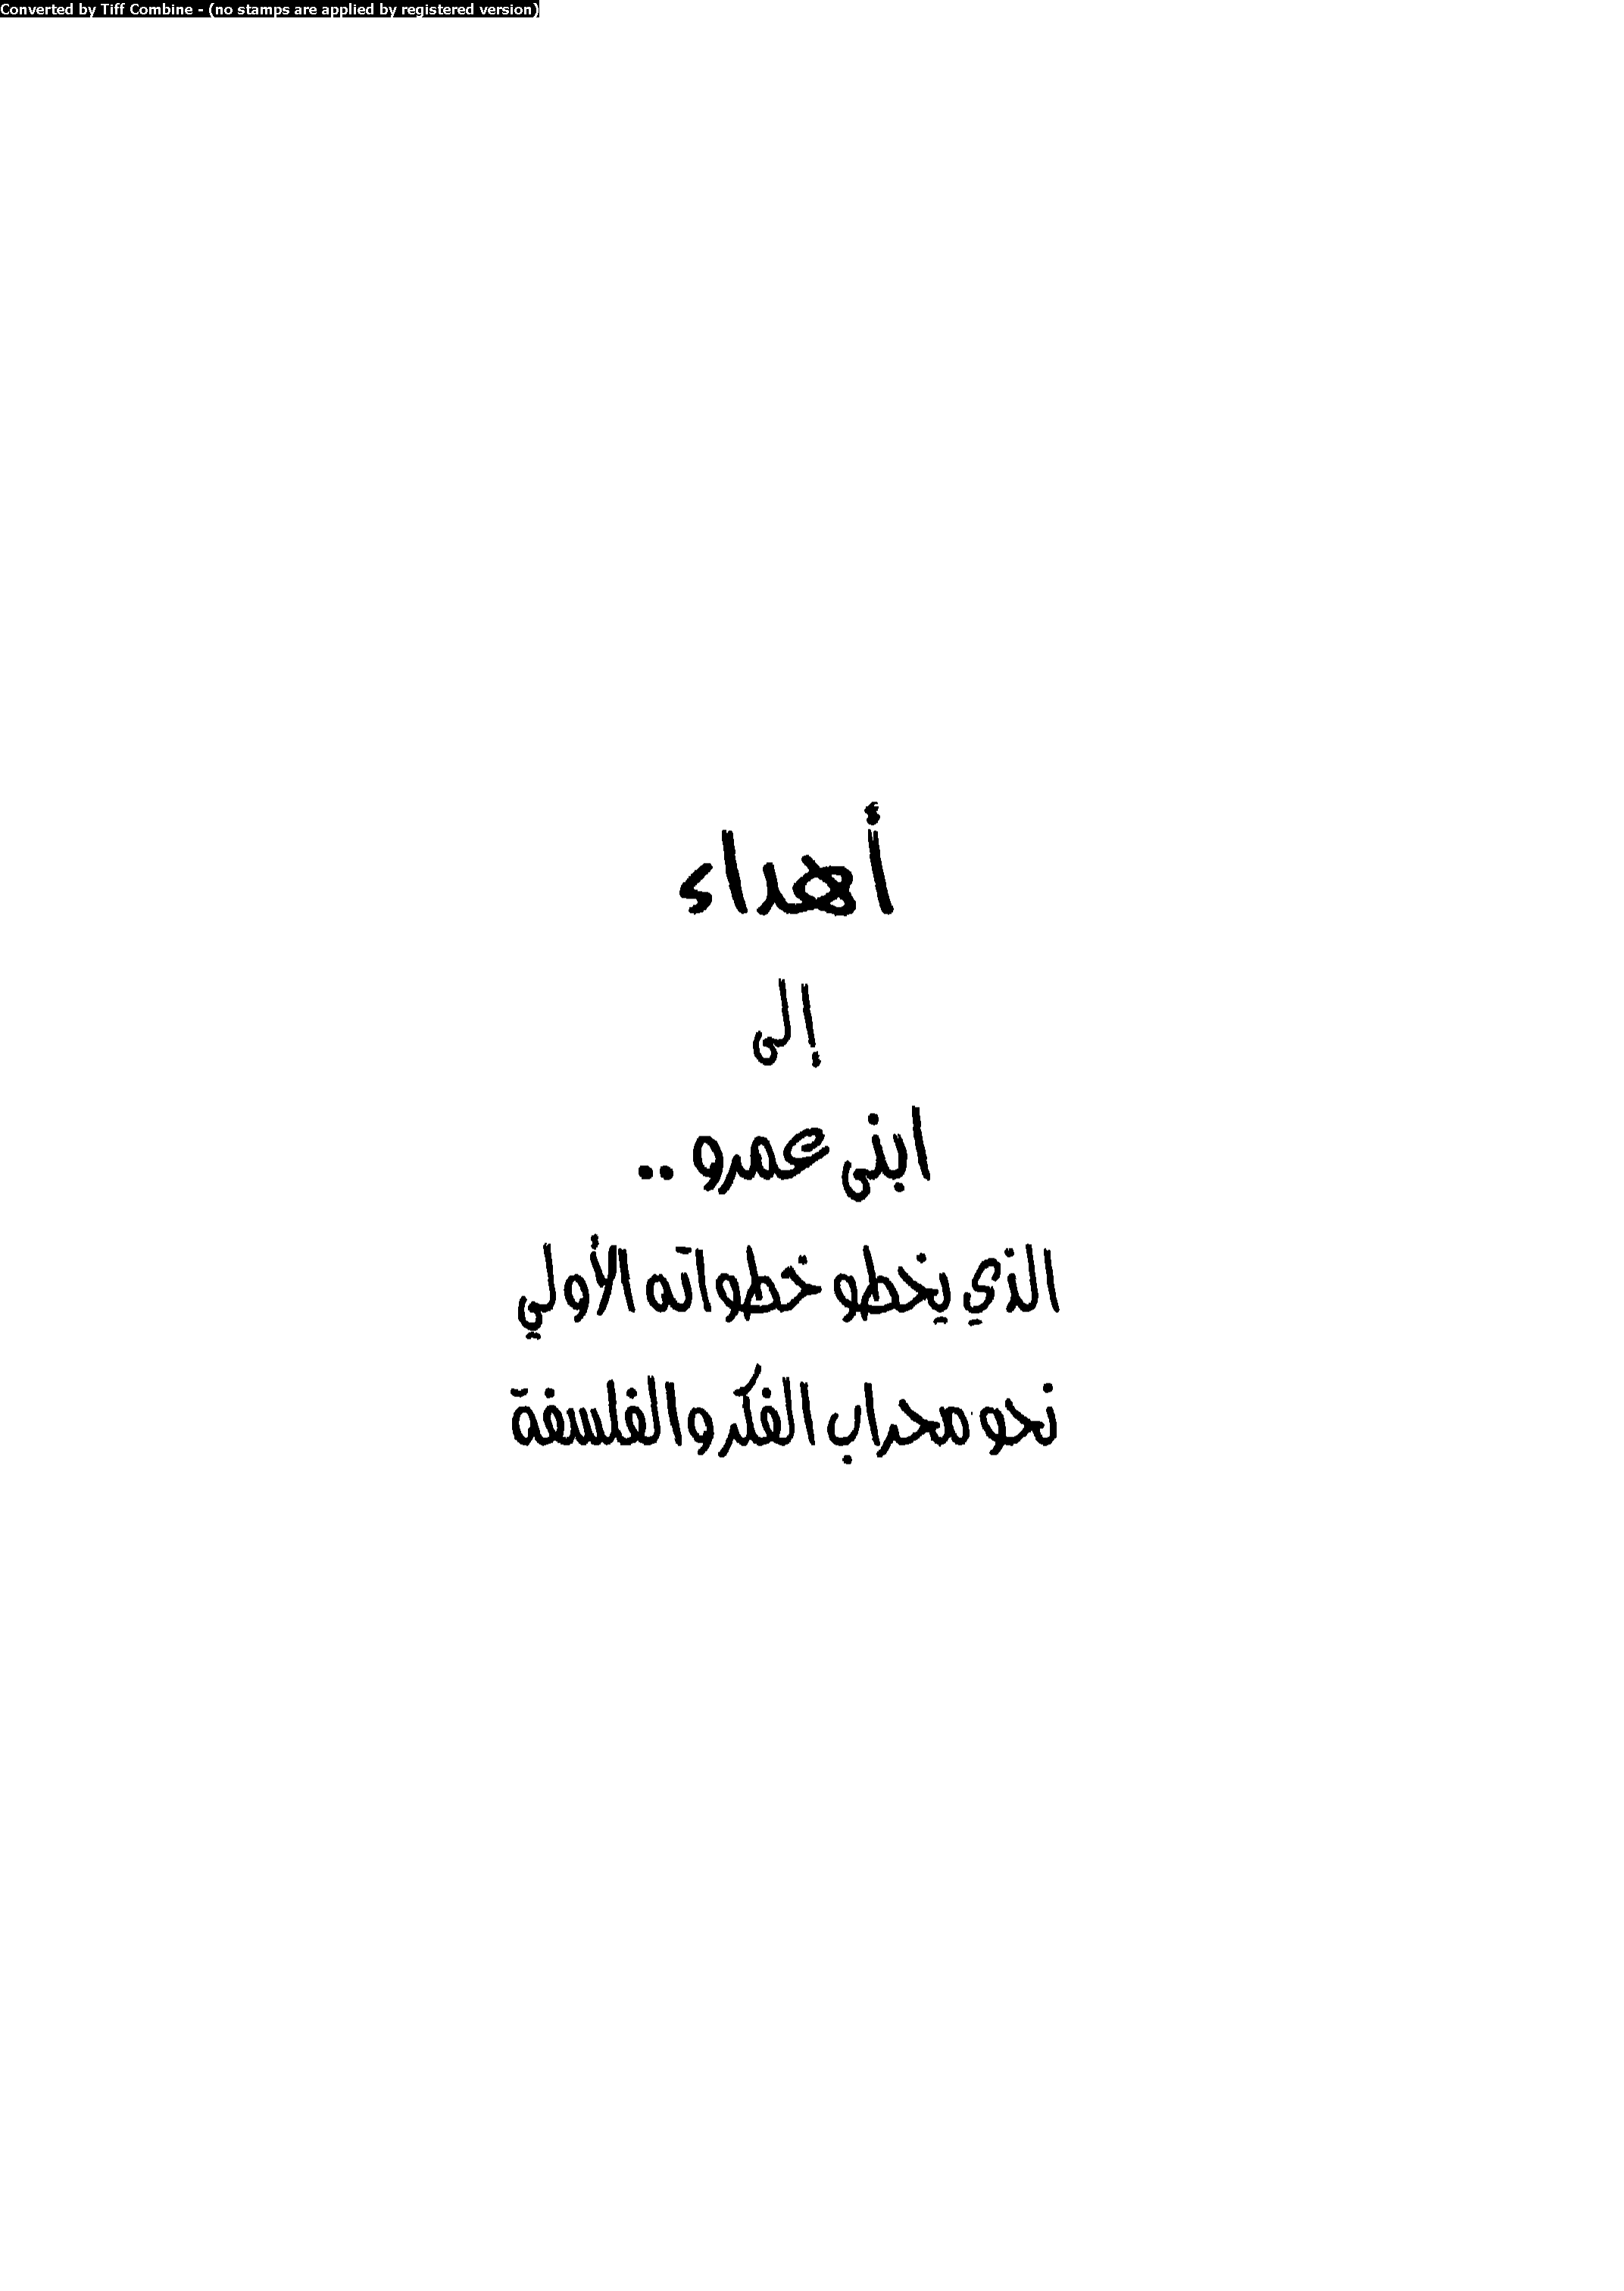 Converted by Tiff Combine - (no stamps are applied by registered version)
أهداء
إلى
ابنى عمرو ..
الذي يخطو خطواته الأولي
نحو محراب الفكر والفلسفة